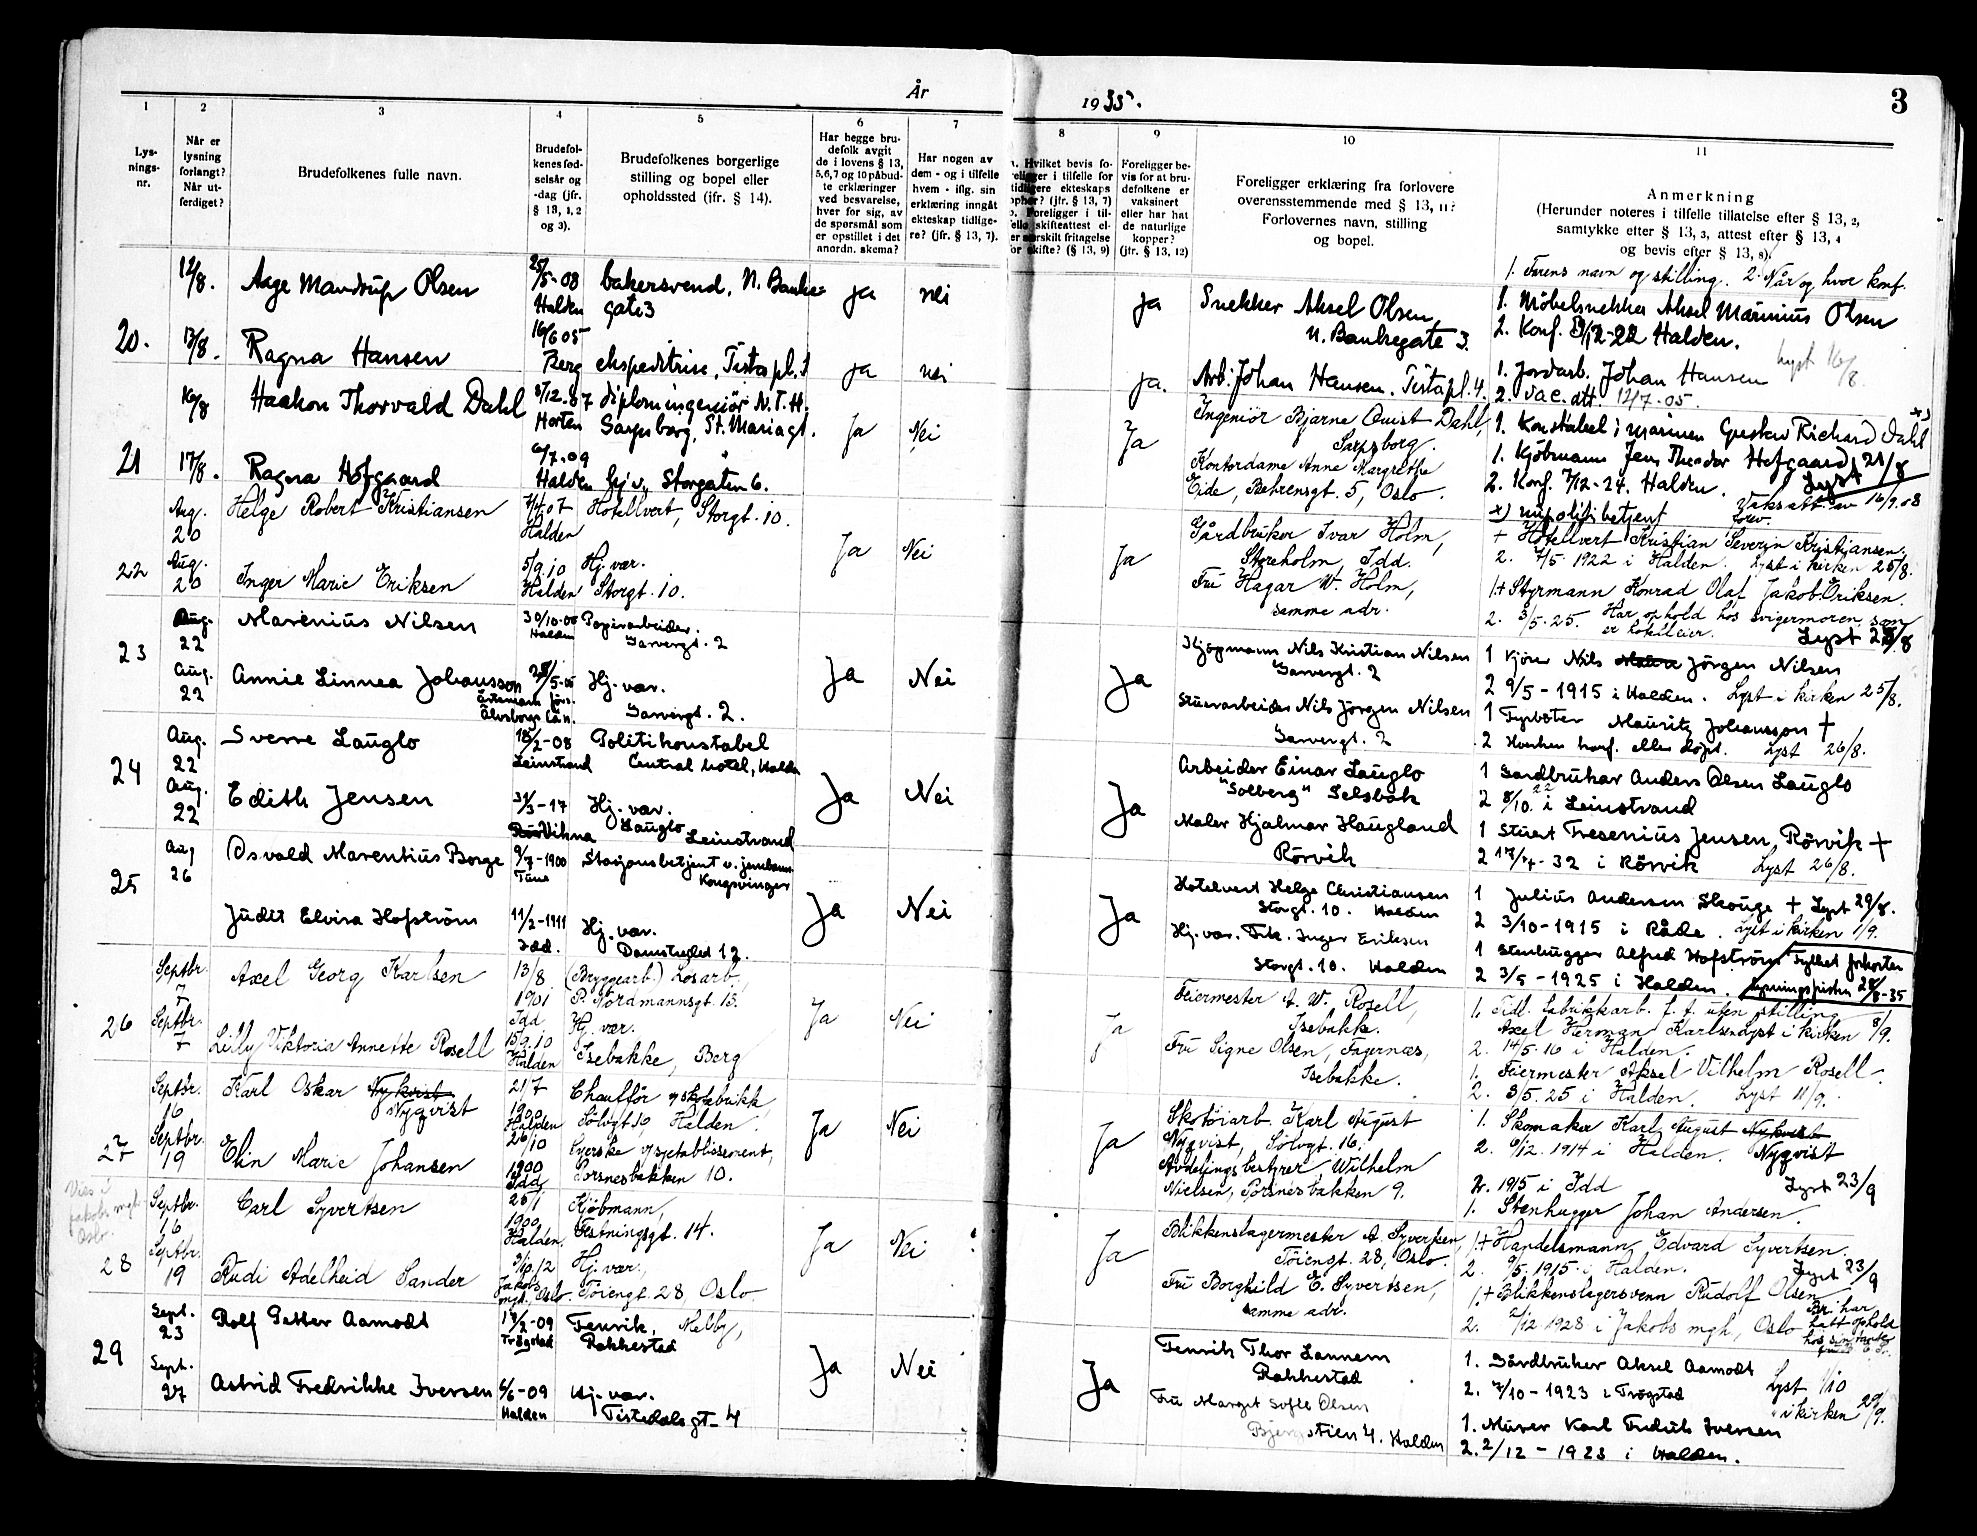 År
1935.
3
1
2
3
4
5
6
7
8
9
10
11
Lys-
nings-
nr.
Når er
lysning
forlangt?
Når ut-
ferdiget?
Brudefolkenes fulle navn.
Brudefol-
kenes fød-
selsår og
-dag (jfr.
§ 13, 1, 2
og 3).
Brudefolkenes borgerlige
stilling og bopel eller
opholdssted (ifr. § 14).
Har begge bru-
defolk avgit
de i lovens § 13,
5,6,7 og 10 påbud-
te erklæringer
ved besvarelse,
hver for sig, av
de spørsmål som
er opstillet i det
anordn. skema?
Har nogen av
dem - og i tilfelle
hvem - iflg. sin
erklæring inngåt
ekteskap tidlige-
re? (jfr. § 13, 7).
Hvilket bevis fo-
religger i tilfelle for
tidligere ekteskaps
ophør? (jfr. § 13, 7)
Foreligger i til-
felle skifteattest el-
ler særskilt fritagelse
for skifte? (§ 13, 9)
Foreligger be-
vis for at bru-
defolkene er
vaksinert
eller har hat
de naturlige
kopper?
(jfr. § 13, 12)
Foreligger erklæring fra forlovere
overensstemmende med § 13, 11?
Forlovernes navn, stilling
og bopel.
Anmerkning
(Herunder noteres i tilfelle tillatelse efter § 13, 2,
samtykke efter § 13, 3, attest efter § 13, 4
og bevis efter § 13, 8).
1. Farens navn og stilling. 2. Når og hvor konf.
20.
12/8.
Aage Mandrup Olsen
25/5-08
Halden
bakersvend, N. Banke-
gate 3
ja
nei
ja
Snekker Aksel Olsen,
N. Bankegate 3.
1. Möbelsnekker Aksel Marinius Olsen
2. Konf. 3/12-22 Halden.
13/8.
Ragna Hansen
16/6 05
Berg
ekspeditrise, Tistapl. 1
ja
nei
ja.
Arb. Johan Hansen. Tistapl. 4.
1. Jordarb. Johan Hansen
2. Vac. att. 12/7-05.
Lyst 16/8.
21
16/8
Haakon Thorvald Dahl
31/12.07
Horten
diplomingeniör N.T.H.
Sarpsborg, St. Mariagt.
Ja
Nei
Ja
Ingeniör Bjarne Quist Dahl,
Sarpsborg.
1. Konstabel i marinen Gustav Richard Dahl x)
17/8.
Ragna Hofgaard
6/7.09
Halden
hj. v. Storgaten 6.
Kontordame Anne Margrethe
Eide, Behrensgt. 5, Oslo.
1. Kjöbmann Jens Theodor Hofgaard
2. Konf. 7/12-24. Halden.
Lyst 21/8
Vaksatt. av 16/9.08
x) nu politibetjent
22
Aug.
20
Helge Robert Kristiansen
7/4.07
Halden
Hotellvert, Storgt. 10.
Ja
Nei
Ja
Gårdbruker Ivar Holm,
Storeholm, Idd.
+ Hotellvert Kristian Severin Kristiansen.
2. 7/5 1922 i Halden. Lyst i kirken 25/8.
Aug.
20
Inger Marie Eriksen
5/9.10
Halden
Hj. vær.
Storgt. 10.
Fru Hagar W. Holm,
samme adr.
1.+ Styrmann Konrad Olaf Jakob Eriksen.
2. 3/5.25. Har ophold hos svigermoren, som
er hotelleier.
Lyst 23/8
23
Aug.
22
Marenius Nilsen
30/10-00
Halden
Papirarbeider.
Garvergt. 2
Ja
Nei
Ja
Kjøpmann Nils Kristian Nilsen
Garvergt. 2
1 Kjörer Nils Jörgen Nilsen
2 9/5-1915 i Halden. Lyst i kirken 25/8.
Aug.
22
Annie Linnea Johansson
28/5-05
Älvsborgs län.
Hj. vær.
Garvergt. 2.
Stuerarbeider Nils Jörgen Nilsen
Garvergt. 2
1 Fyrböter Mauritz Johansson +
2 Hverken konf. eller döpt. Lyst 26/8.
24
Aug.
22
Sverre Lauglo
18/2-08
Leinstrand
Politikonstabel
Central hotel, Halden
Ja
Nei
Ja
Arbeider Einar Lauglo
"Solberg" Selsbak
1 Gardbruker Anders Olsen Lauglo
2 8/10.22 i Leinstrand
Aug.
22
Edith Jensen
31/3-17
Vikna
Hj. vær.
Lauglo
Leinstrand
Maler Hjalmar Haugland
Rörvik
1 Stuert Fresenius Jensen, Rörvik +
2 17/7-32 i Rörvik Lyst 26/8.
25
Aug
26
Osvald Marentius Borge
9/7-1900
Tune
Stasjonsbetjent v. jernbanen
Kongsvinger
Ja
Nei
Ja
Hotelvert Helge Christiansen
Storgt. 10. Halden
1 Julius Andersen Skouge + Lyst 29/8.
2 3/10-1915 i Råde. Lyst i kirken 1/9.
Judit Elvira Hofström
11/2-1911
Idd.
Hj. vær.
Damstredet 12.
Hj. vær. Frk. Inger Eriksen
Storgt. 10. Halden
1 Stenhugger Alfred Hofström
2 3/5-1925 i Halden.
lysningspristen 28/8-35
26
Septbr.
7
Axel Georg Karlsen
13/8
1901
Idd
(Bryggearb.) Losarb.,
P. Nordmannsgt. 13.
Ja
Nei
Ja
Feiermester A. W. Rosell,
Isebakke.
1. Tidl. fabrikkarb. f. t. uten stilling
Axel Herman Karlsen Lyst i kirken 8/9.
2. 14/5-16 i Halden.
Septbr.
7
Lilly Viktoria Annette Rosell
15/9.10
Halden
Hj. vær.
Isebakke, Berg
Fru Signe Olsen, Fagernæs,
Isebakke.
1. Feiermester Aksel Vilhelm Rosell.
2. 3/5.25 i Halden. Lyst 11/9.
27
Septbr.
16
Karl Oskar Nykvist
Nyqvist
21/7
1900
Halden
Chauffør v/ skofabrikk,
Sölvgt 10, Halden.
Ja
Nei
Ja
Skotöiarb. Karl August
Nyqvist, Sölvgt. 16.
1. Skomaker Karl August Nykvist
2. 6/12. 1914 i Halden. Nyqvist
Septbr.
19
Elin Marie Johansen
26/10
1900
Idd
Syerske v/ syetablissement,
Porsnesbakken 10.
Avdelingsbestyrer Wilhelm
Nielsen, Porsnesbakken 9.
2. 1915 i Idd
Lyst 23/9
1. Stenhugger Johan Andersen.
Vies i
Jakobs mgh.
Oslo.
28
Septbr.
16
Carl Syvertsen
25/1
1900
Halden.
Kjöbmann,
Festningsgt. 14.
Ja
Nei
Ja
Blikkenslagermester A. Syvertsen,
Töiengt. 28, Oslo.
1.+ Handelsmann Edvard Syvertsen.
2. 9/5. 1915 i Halden. Lyst 23/9
Septbr.
19
Rudi Adelheid Sander
9/10.12
Jakobs
mgh., Oslo.
Hj. vær.,
Töiengt. 28, Oslo.
Fru Borghild E. Syvertsen,
samme adr.
1.+ Blikkenslagersvenn Rudolf Olsen
2. 2/12 1928 i Jakobs mgh., Oslo
Bri. har
hatt ophold
hos sin tante
29
Sept.
23
Rolf Petter Aamodt
17/2-09
Trögstad
Fenrik, Melby,
Rakkestad
Ja
Nei
Ja
Fenrik Thor Lannem
Rakkestad
1. Gårdbruker Aksel Aamodt
2. 7/10-1923 i Trögstad
Lyst 1/10
" i kirken 29/9.
Sept.
27
Astrid Fredrikke Iversen
6/6-09
Halden
Hj. vær.
Tistedalsgt 4
Fru Margit Sofie Olsen
Bjørnstien 4. Halden
1. Murer Karl Fredrik Iversen
2. 2/12-1923 i Halden.